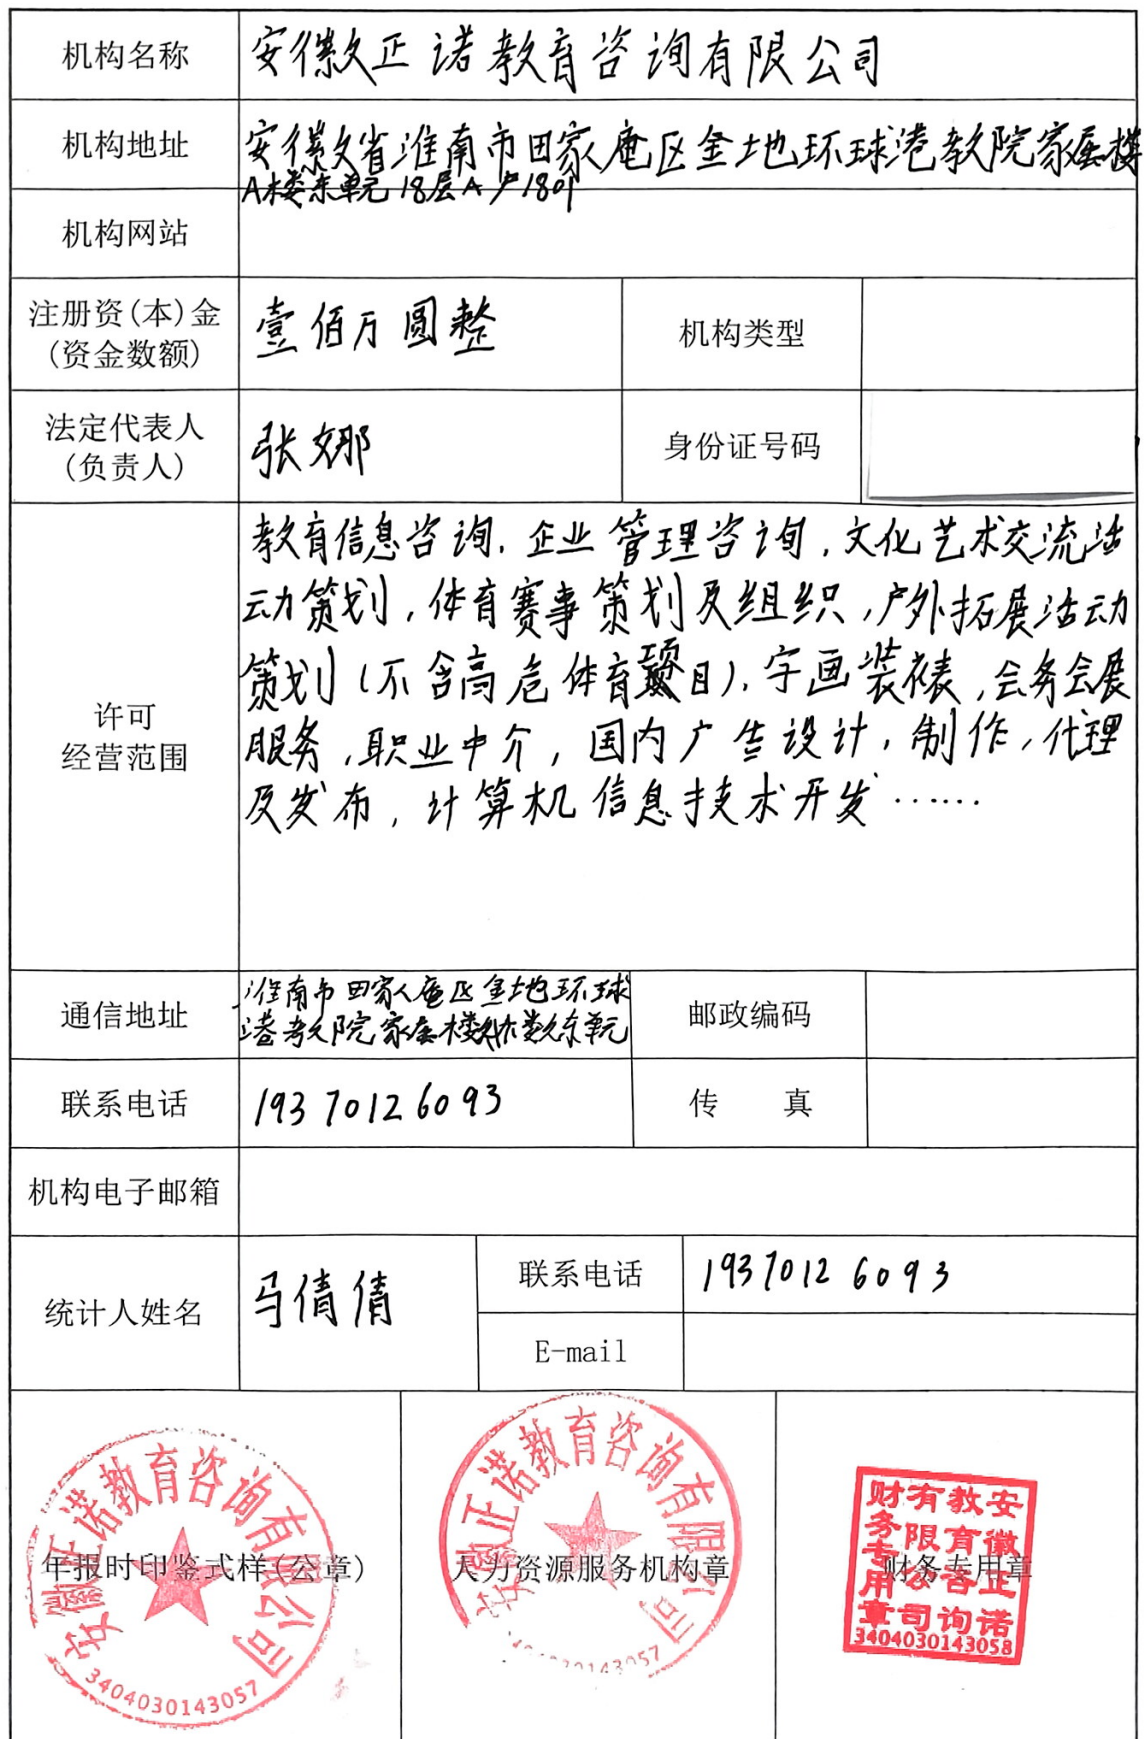 机构名称 安徽正诺教育咨询有限公司
机构地址 安徽省淮南市田家庵区金地环球港教院家属楼
A楼东单元18层A户1801
机构网站
注册资(本)金
(资金数额) 壹佰万圆整 机构类型
法定代表人
(负责人) 张娜 身份证号码
许可
经营范围
教育信息咨询,企业管理咨询,文化艺术交流活
动策划,体育赛事策划及组织,户外拓展活动
策划(不含高危体育项目),字画装裱,会务会展
服务,职业中介,国内广告设计,制作,代理
及发布,计算机信息技术开发……
通信地址 淮南市田家庵区金地环球
港教院家属楼A楼东单元 邮政编码
联系电话 19370126093 传 真
机构电子邮箱
统计人姓名 马倩倩 联系电话 19370126093
E-mail
年报时印鉴式样(公章) 人力资源服务机构章 财务专用章
安徽正诺教育咨询有限公司
3404030143057
安徽正诺教育咨询有限公司
0143057
安徽正诺
教育咨询
有限公司
财务专用章
3404030143058